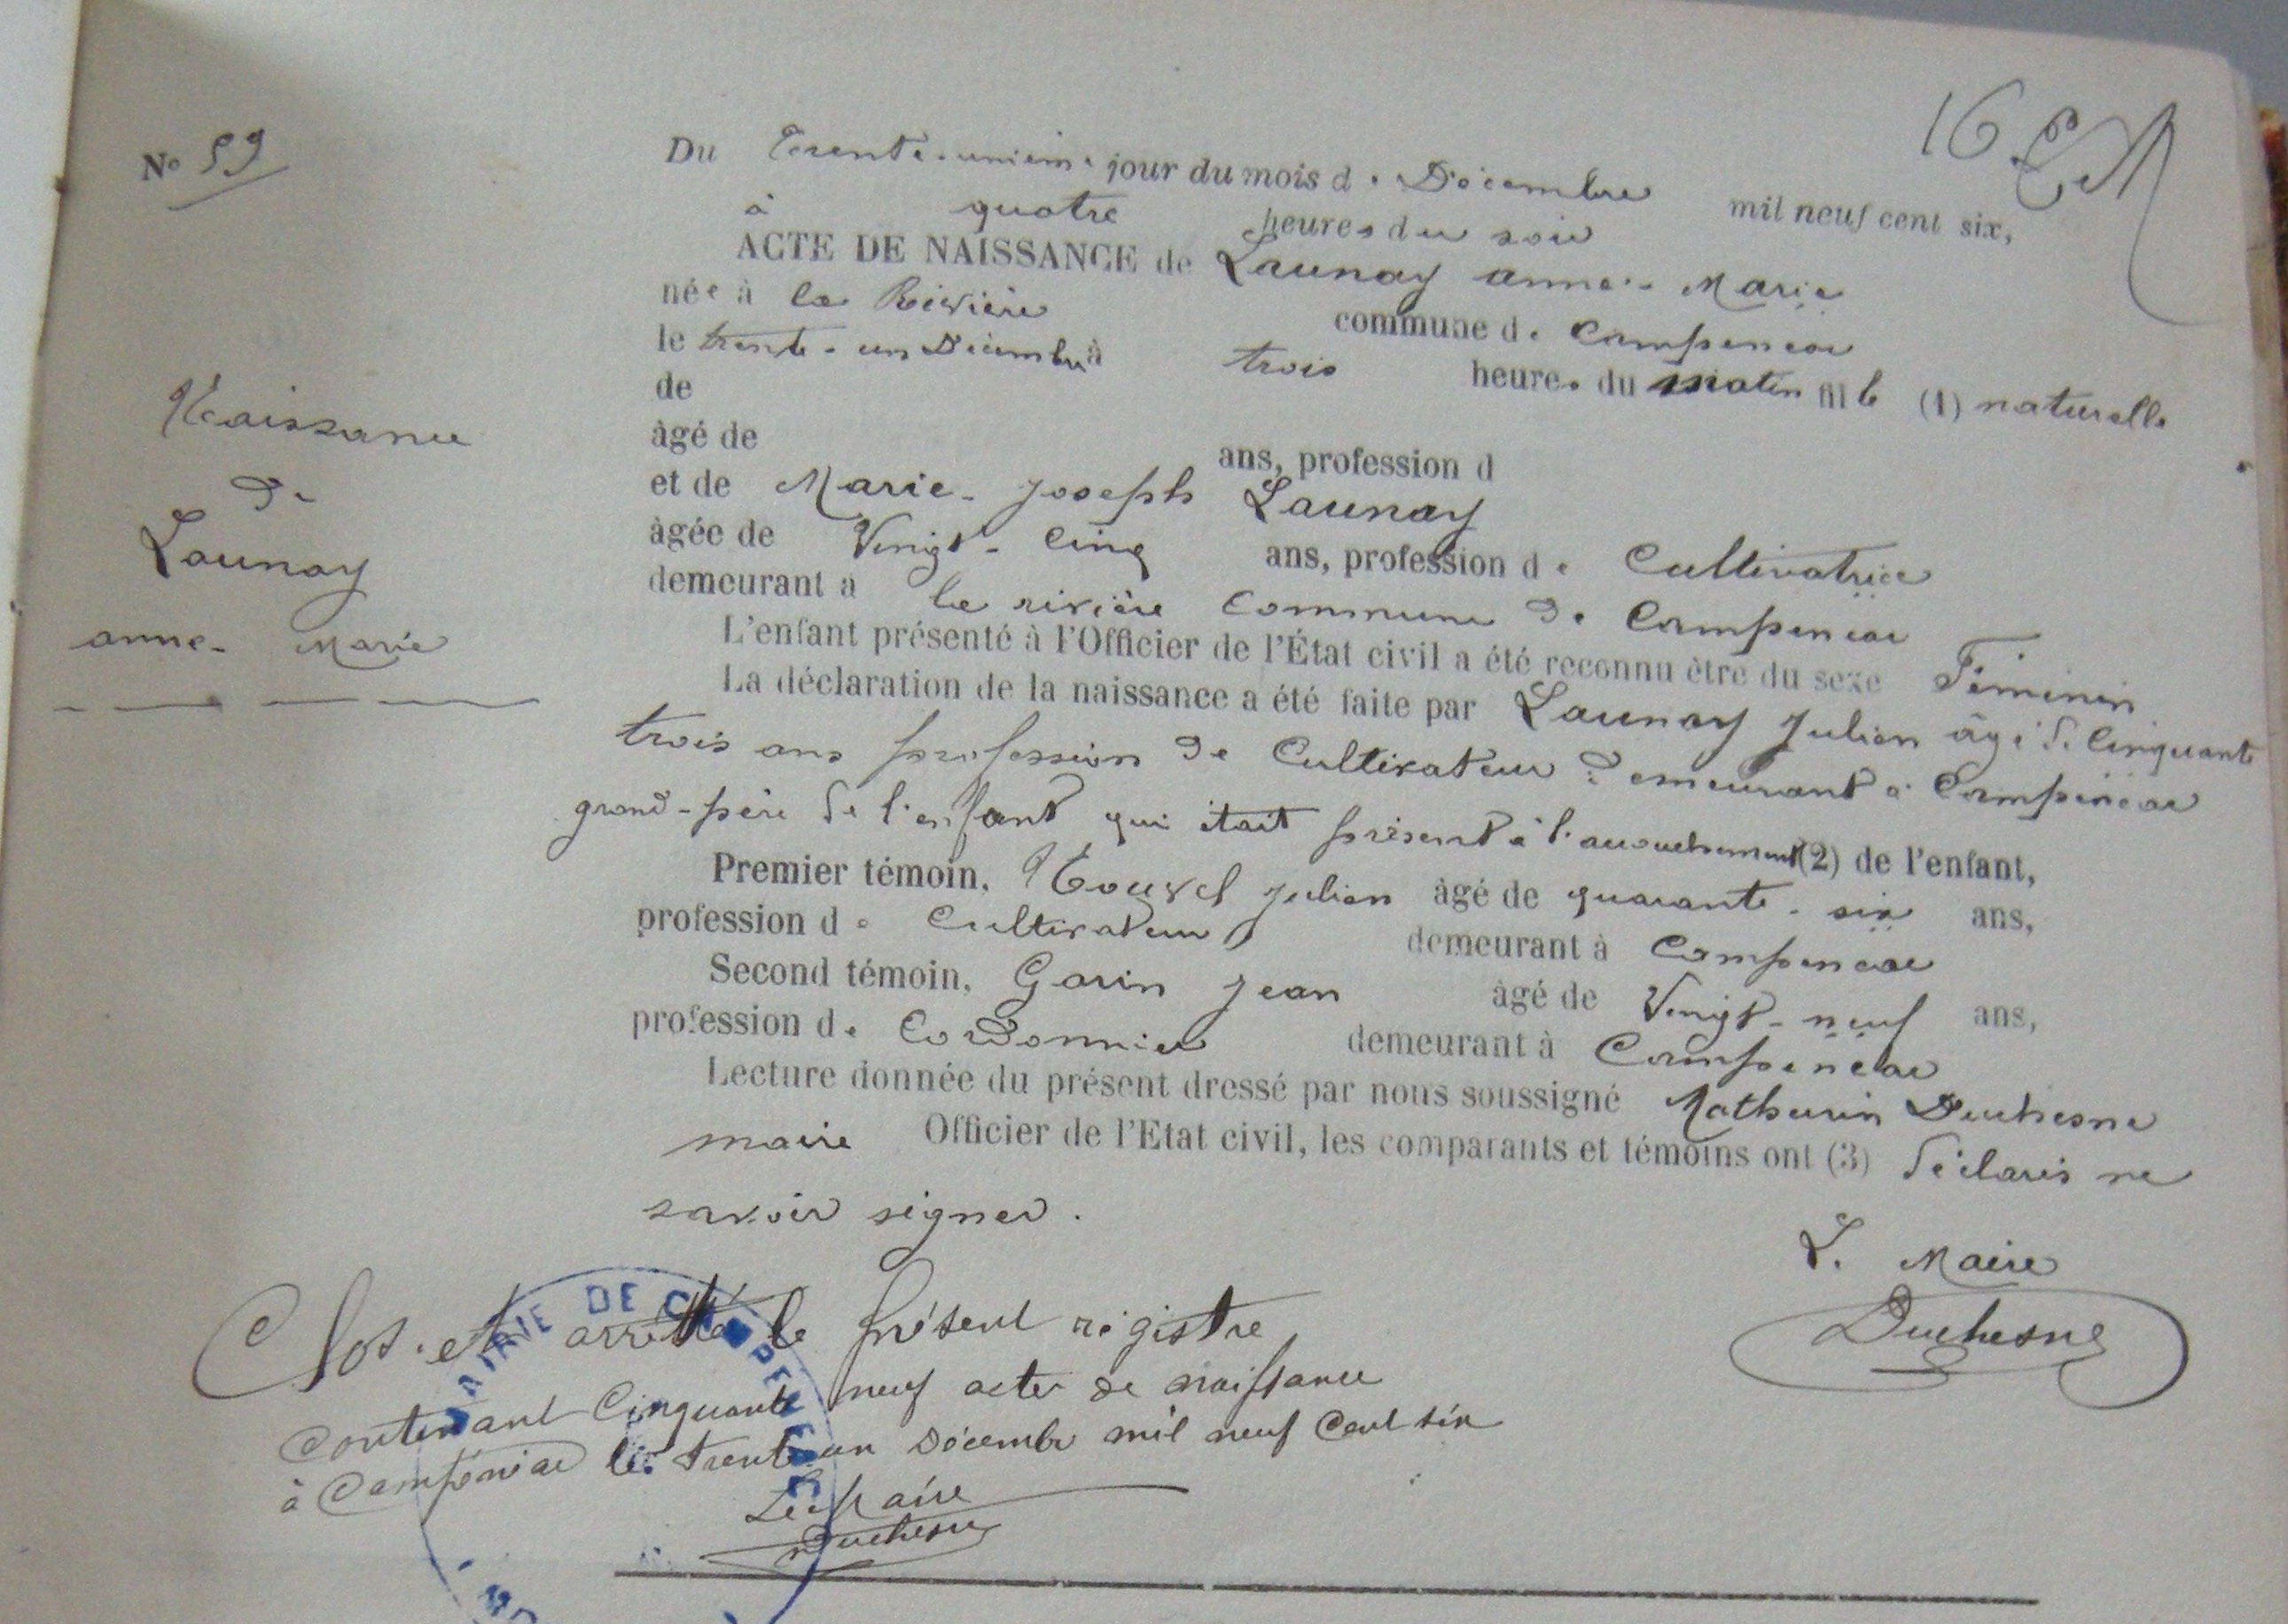 16
N° 59
Naissance
De
Launay
anne-Marie
Du Trente-unième jour du mois de Décembre mil neuf cent six,
à quatre heures du soir
ACTE DE NAISSANCE de Launay anne-Marie
née à la Rivière commune de Campénéac
le trente-un Décembre à trois heures du matin fille (1) naturelle
de
âgé de ans, profession d
et de Marie-Joseph Launay
âgée de Vingt-Cinq ans, profession de Cultivatrice
demeurant à la rivière Commune De Campénéac
L'enfant présenté à l'Officier de l'État civil a été reconnu être du sexe Féminin
La déclaration de la naissance a été faite par Launay Julien âgé de Cinquante
trois ans profession De Cultivateur Demeurant à Campénéac
grand-père de l'enfant qui était présent à l'accouchement (2) de l'enfant,
Premier témoin, Nouvel Julien âgé de quarante-six ans,
profession de Cultivateur demeurant à Campénéac
Second témoin, Garin Jean âgé de Vingt-neuf ans,
profession de Cordonnier demeurant à Campénéac
Lecture donnée du présent dressé par nous soussigné Mathurin Duchesne
maire Officier de l'Etat civil, les comparants et témoins ont (3) déclaré ne
savoir signer.
L. Maire
Duchesne
Clos et arrêté le présent registre
contenant Cinquante neuf actes de naissance
à Campénéac le trente un Décembre mil neuf Cent six
Le Maire
Duchesne
MAIRIE DE CAMPENEAC